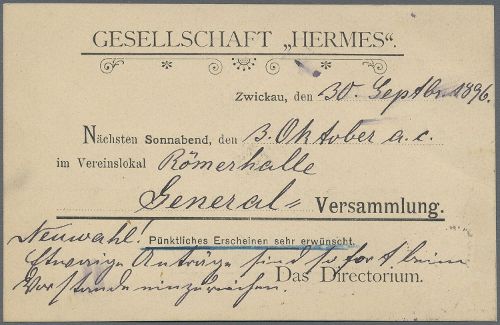 GESELLSCHAFT „HERMES“.
Zwickau, den 30. Septbr. 1896.
Nächsten Sonnabend, den 3. Oktober a. c.
im Vereinslokal Römerhalle
General= Versammlung.
Neuwahl! Pünktliches Erscheinen sehr erwünscht.
Etwaige Anträge sind sofort beim
Das Directorium.
Vorstande einzureichen.